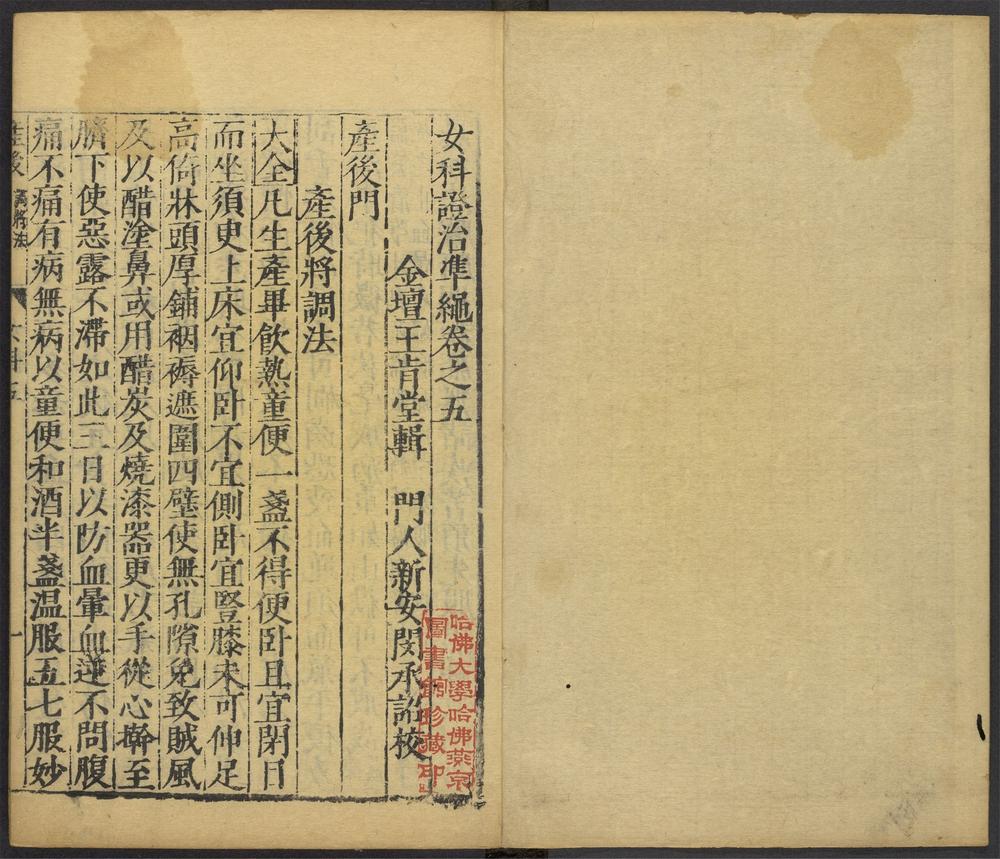 女科證治準繩卷之五
金壇王肯堂輯　門人新安閔承詔校
產後門
產後將調法
大全凡生產畢飲熱童便一盞不得便卧且宜閉目
而坐須臾上床宜仰卧不宜側卧宜豎膝未可伸足
高倚牀頭厚鋪裀褥遮圍四壁使無孔隙免致賊風
及以醋塗鼻或用醋炭及燒漆器更以手從心擀至
臍下使惡露不滯如此三日以防血暈血逆不問腹
痛不痛有病無病以童便和酒半盞温服五七服妙
產後
將法
女科五
一
哈佛大學哈佛燕京
圖書館珍藏印